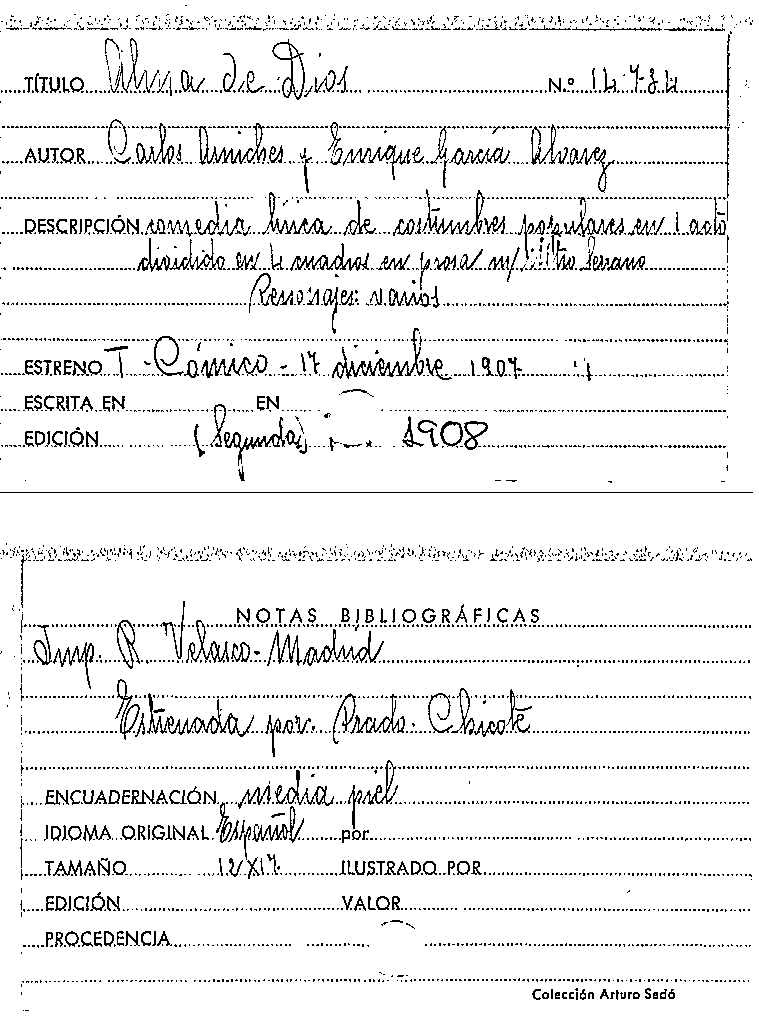 TÍTULO Alma de Dios N.º 14.784
AUTOR Carlos Arniches y Enrique García Alvarez
DESCRIPCIÓN comedia lírica de costumbres populares en 1 acto
dividido en 4 cuadros en prosa m/ Mtro Serrano
Personajes: varios
ESTRENO T. Cómico - 17 diciembre 1907
ESCRITA EN EN
EDICIÓN (Segunda) 1908
NOTAS BIBLIOGRÁFICAS
Imp. R. Velasco - Madrid
Estrenada por: Prado - Chicote
ENCUADERNACIÓN media piel
IDIOMA ORIGINAL Español por
TAMAÑO 12x17 ILUSTRADO POR
EDICIÓN VALOR
PROCEDENCIA
Colección Arturo Sedó